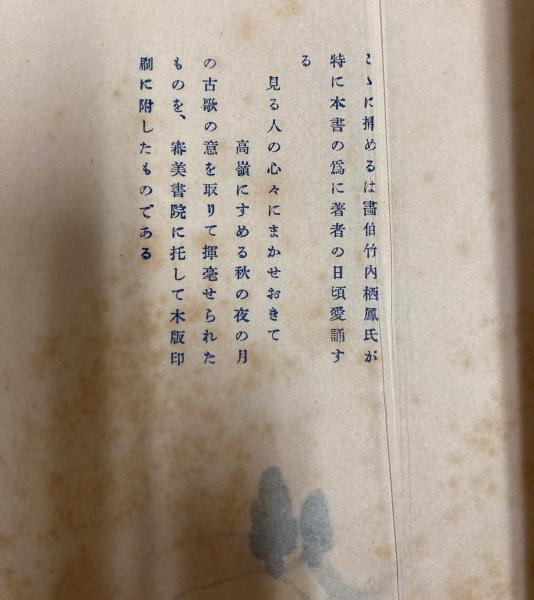 こゝに挿めるは畫伯竹內栖鳳氏が
特に本書の爲に著者の日頃愛誦す
る
見る人の心々にまかせおきて
高嶺にすめる秋の夜の月
の古歌の意を取りて揮毫せられた
ものを、審美書院に托して木版印
刷に附したものである